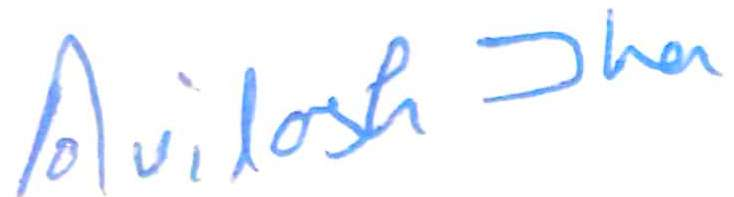 Avilash Jha